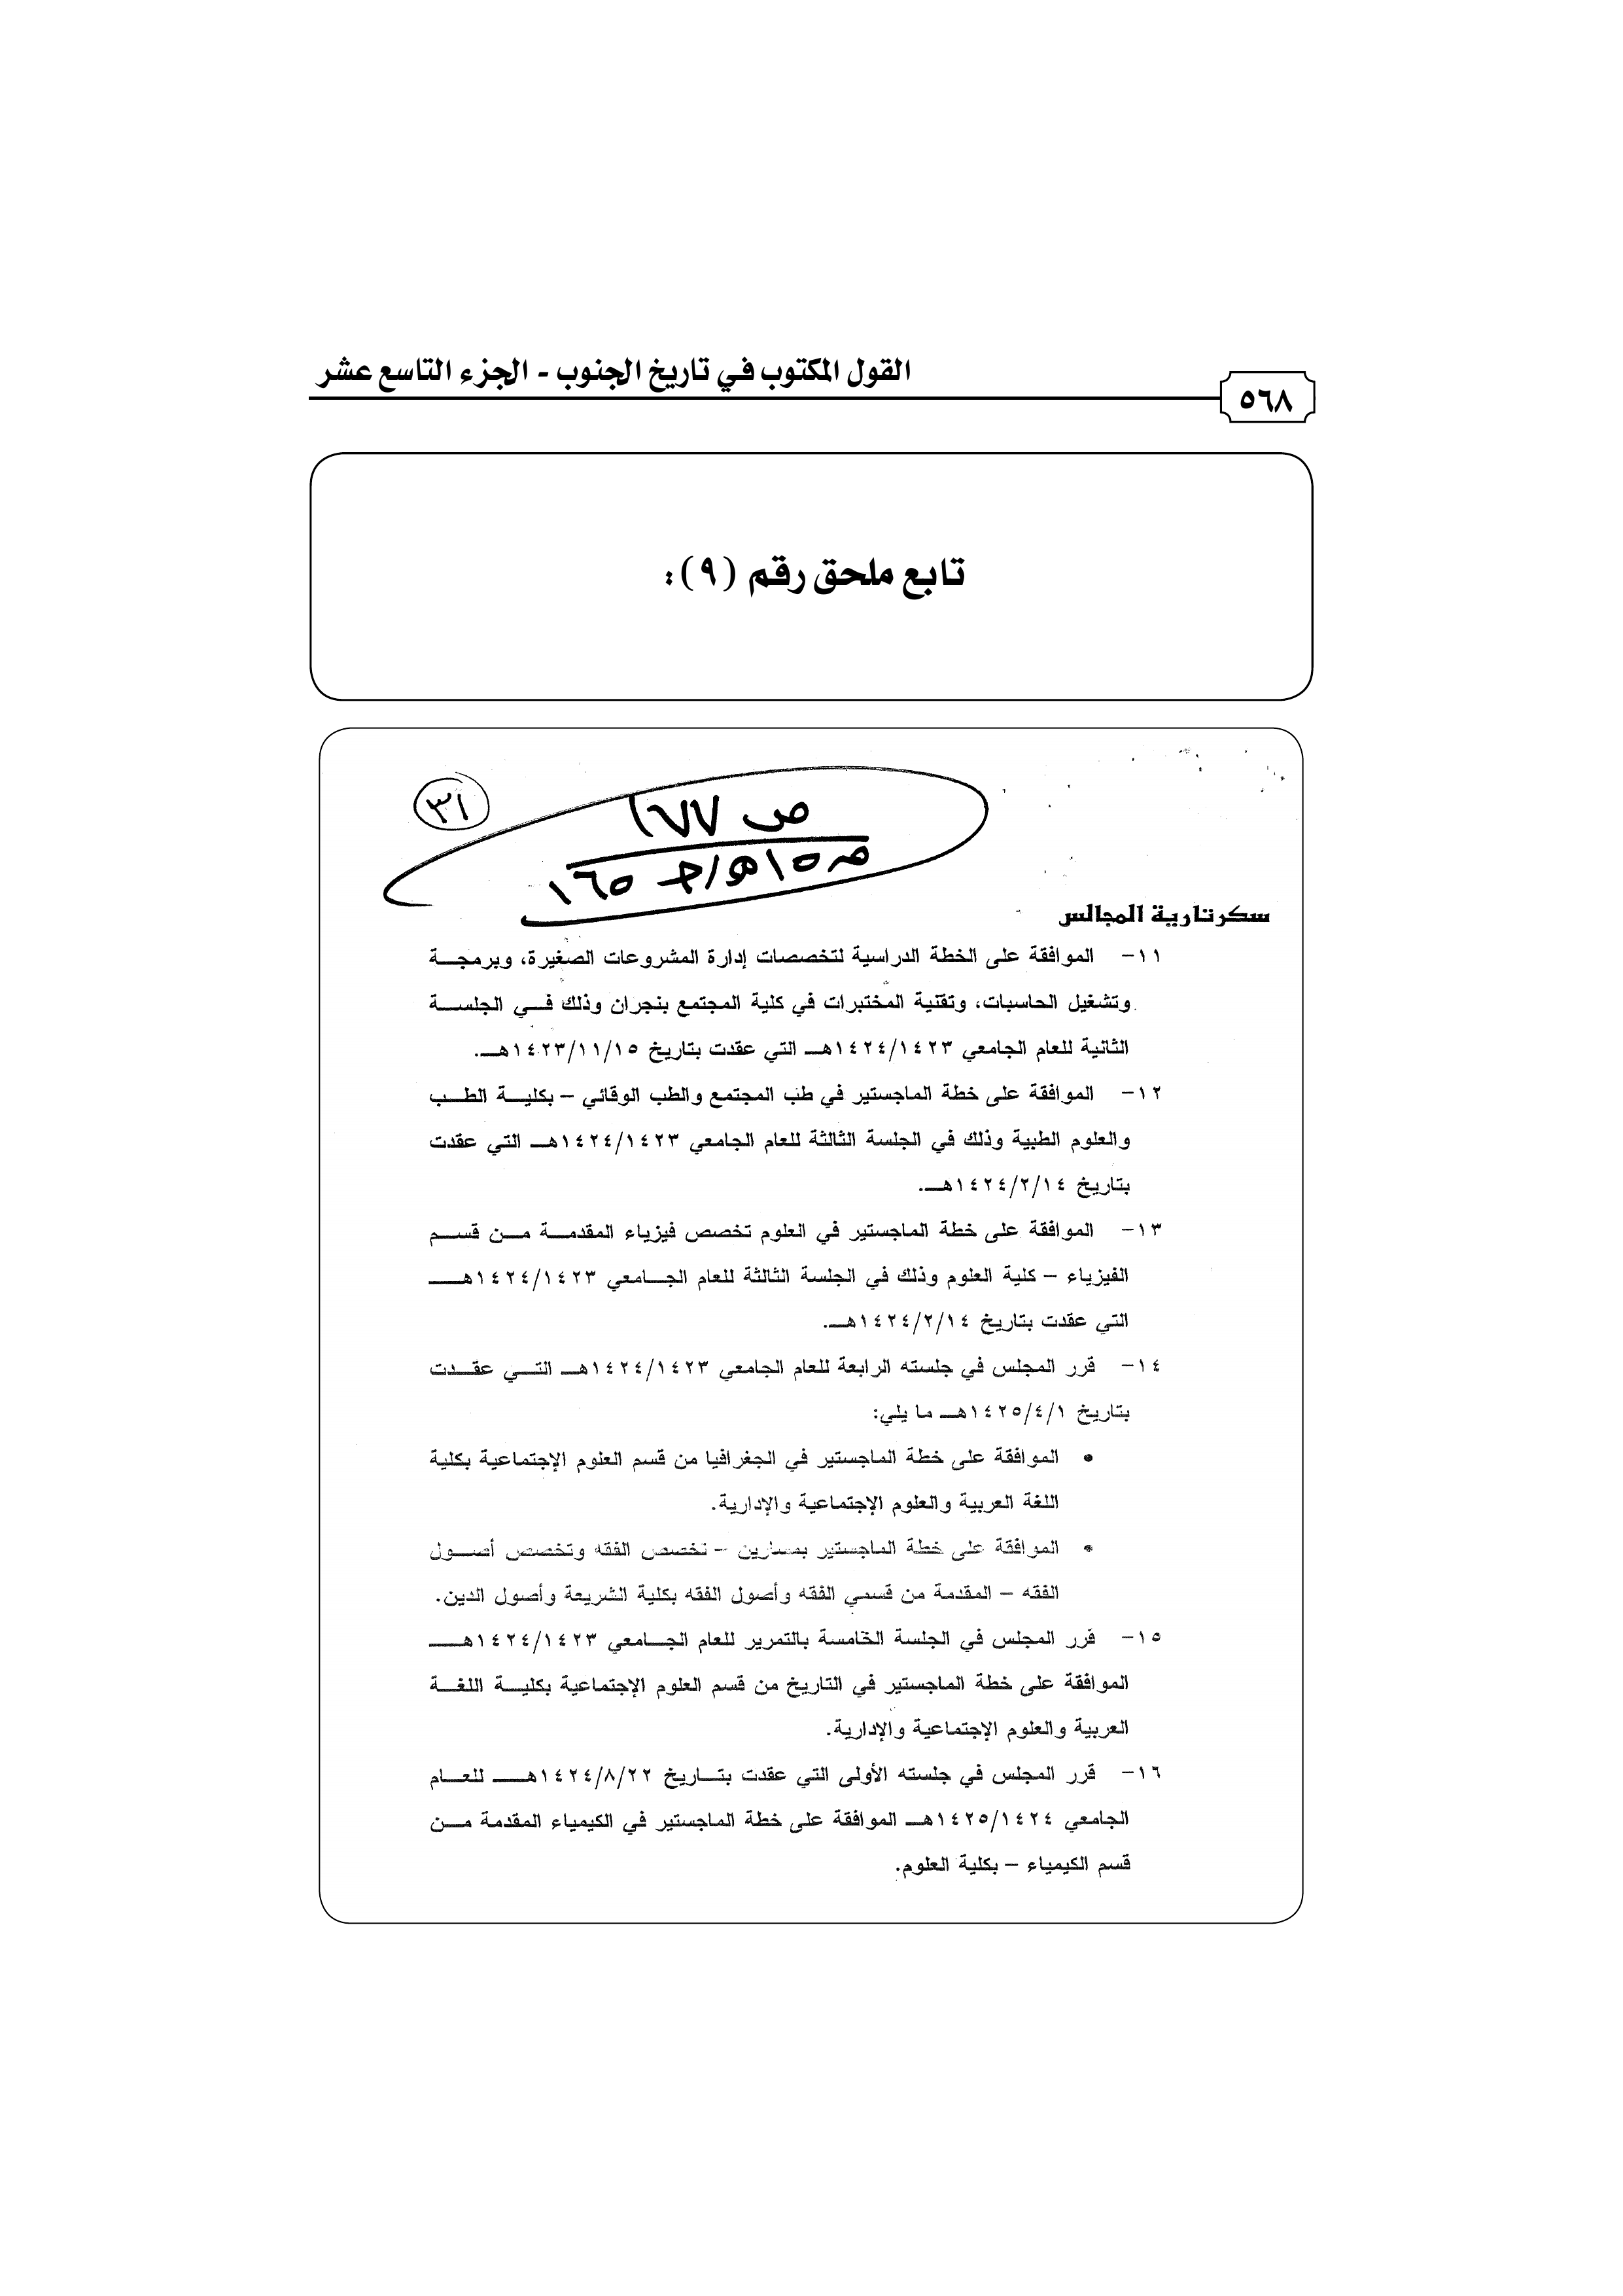 القول المكتوب في تاريخ الجنوب - الجزء التاسع عشر
٥٦٨
تابع ملحق رقم (٩):
٣١
ص ١٦٧٧
سكرتارية المجالس
١١- الموافقة على الخطة الدراسية لتخصصات إدارة المشروعات الصغيرة، وبرمجة
وتشغيل الحاسبات، وتقنية المختبرات في كلية المجتمع بنجران وذلك في الجلسة
الثانية للعام الجامعي ١٤٢٤/١٤٢٣هـ التي عقدت بتاريخ ١٤٢٣/١١/١٥هـ.
١٢- الموافقة على خطة الماجستير في طب المجتمع والطب الوقائي – بكلية الطب
والعلوم الطبية وذلك في الجلسة الثالثة للعام الجامعي ١٤٢٤/١٤٢٣هـ التي عقدت
بتاريخ ١٤٢٤/٢/١٤هـ.
١٣- الموافقة على خطة الماجستير في العلوم تخصص فيزياء المقدمة من قسم
الفيزياء – كلية العلوم وذلك في الجلسة الثالثة للعام الجامعي ١٤٢٤/١٤٢٣هـ
التي عقدت بتاريخ ١٤٢٤/٢/١٤هـ.
١٤- قرر المجلس في جلسته الرابعة للعام الجامعي ١٤٢٤/١٤٢٣هـ التي عقدت
بتاريخ ١٤٢٥/٤/١هـ ما يلي:
• الموافقة على خطة الماجستير في الجغرافيا من قسم العلوم الإجتماعية بكلية
اللغة العربية والعلوم الإجتماعية والإدارية.
• الموافقة على خطة الماجستير بمسارين – تخصص الفقه وتخصص أصول
الفقه – المقدمة من قسمي الفقه وأصول الفقه بكلية الشريعة وأصول الدين.
١٥- قرر المجلس في الجلسة الخامسة بالتمرير للعام الجامعي ١٤٢٤/١٤٢٣هـ
الموافقة على خطة الماجستير في التاريخ من قسم العلوم الإجتماعية بكلية اللغة
العربية والعلوم الإجتماعية والإدارية.
١٦- قرر المجلس في جلسته الأولى التي عقدت بتاريخ ١٤٢٤/٨/٢٢هـ للعام
الجامعي ١٤٢٥/١٤٢٤هـ الموافقة على خطة الماجستير في الكيمياء المقدمة من
قسم الكيمياء – بكلية العلوم.